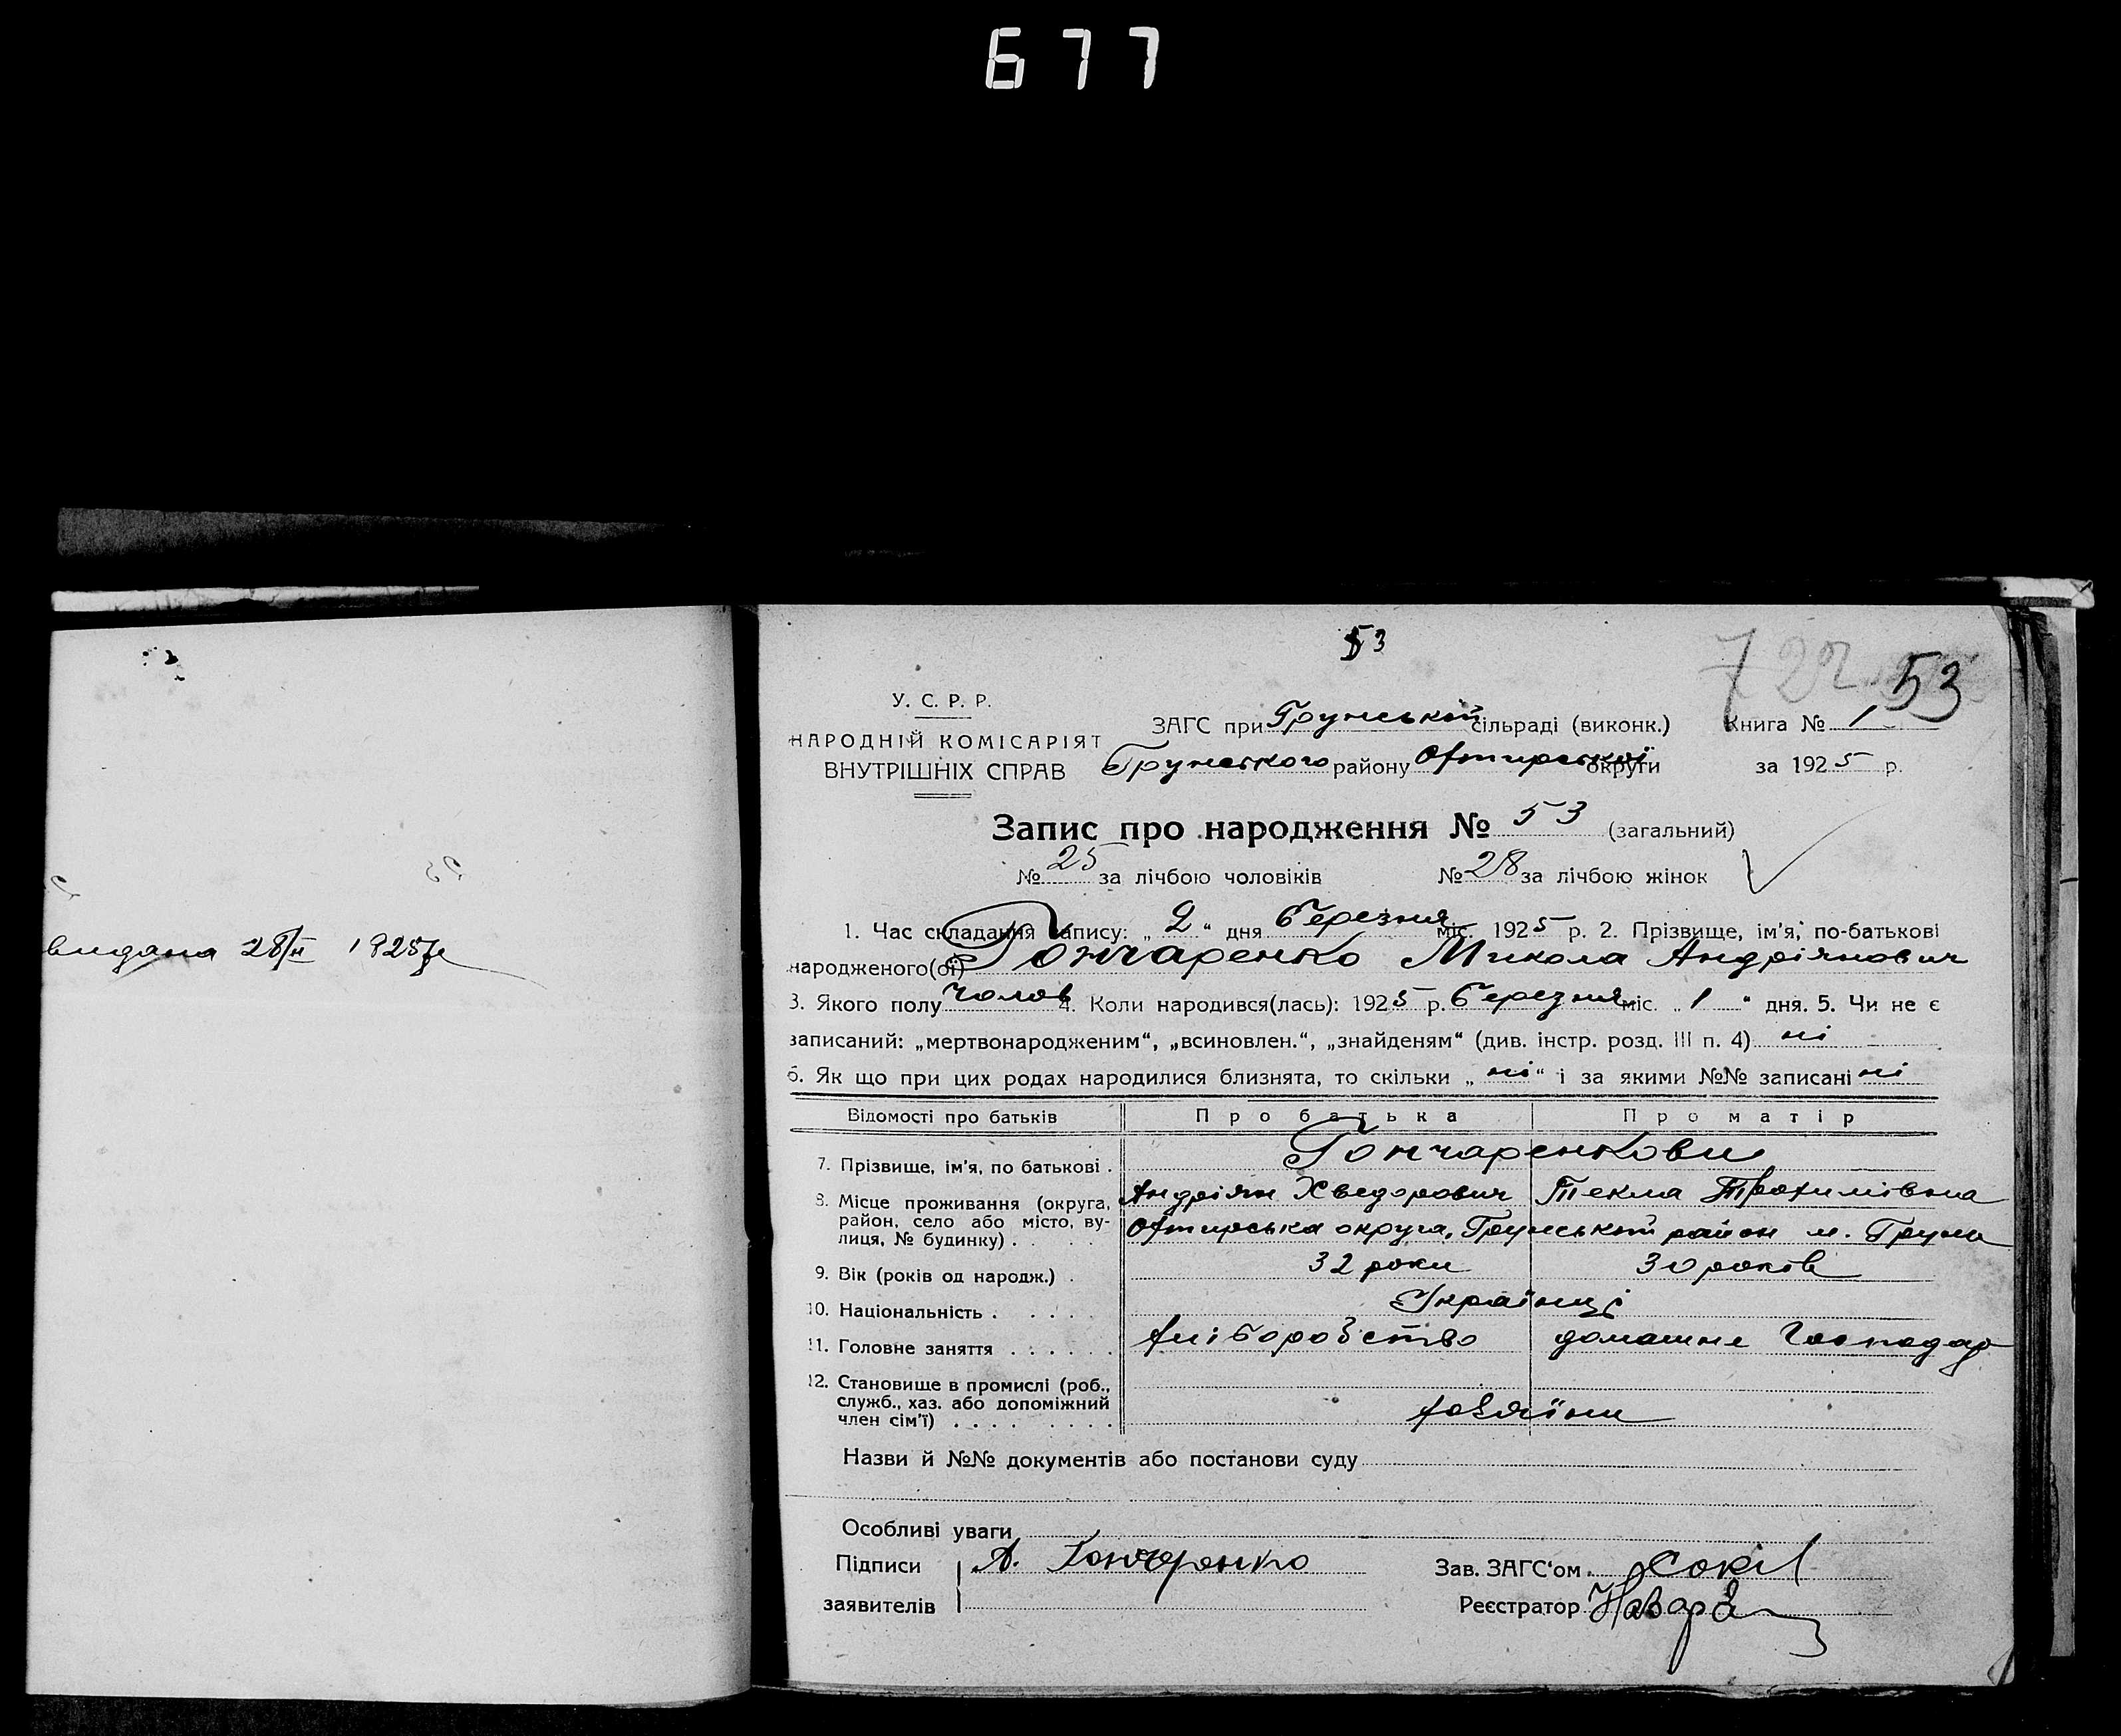 677
видана 28/II 1925 р
53
722 53
У. С. Р. Р.
НАРОДНІЙ КОМІСАРІЯТ
ВНУТРІШНІХ СПРАВ
ЗАГС при Грунській сільраді (виконк.) Книга № 1
Грунського району Охтирської округи за 1925 р.
Запис про народження № 53 (загальний)
№ 25 за лічбою чоловіків № 28 за лічбою жінок
1. Час складання запису: „2“ дня березня міс. 1925 р. 2. Прізвище, ім'я, по-батькові
народженого(ої) Гончаренко Микола Андріянович
3. Якого полу чолов 4. Коли народився(лась): 1925 р. березня міс. „1“ дня. 5. Чи не є
записаний: „мертвонародженим“, „всиновлен.“, „знайденям“ (див. інстр. розд. III п. 4) ні
6. Як що при цих родах народилися близнята, то скільки „ні“ і за якими №№ записані ні
Відомості про батьків Про батька Про матір
7. Прізвище, ім'я, по батькові . Гончаренкови
Андріян Хведорович Текла Трохимівна
8. Місце проживання (округа, район, село або місто, вулиця, № будинку) . Охтирська округа, Грунський район м. Грунь
9. Вік (років од народж.) . 32 роки 30 років
10. Національність . Українці
11. Головне заняття . . . . . . Хліборобство домашне господар
12. Становище в промислі (роб.,
служб., хаз. або допоміжний
член сім'ї) . . . . хазяїни
Назви й №№ документів або постанови суду
Особливі уваги
Підписи А. Гончаренко Зав. ЗАГС'ом. Сокіл
заявителів Реєстратор